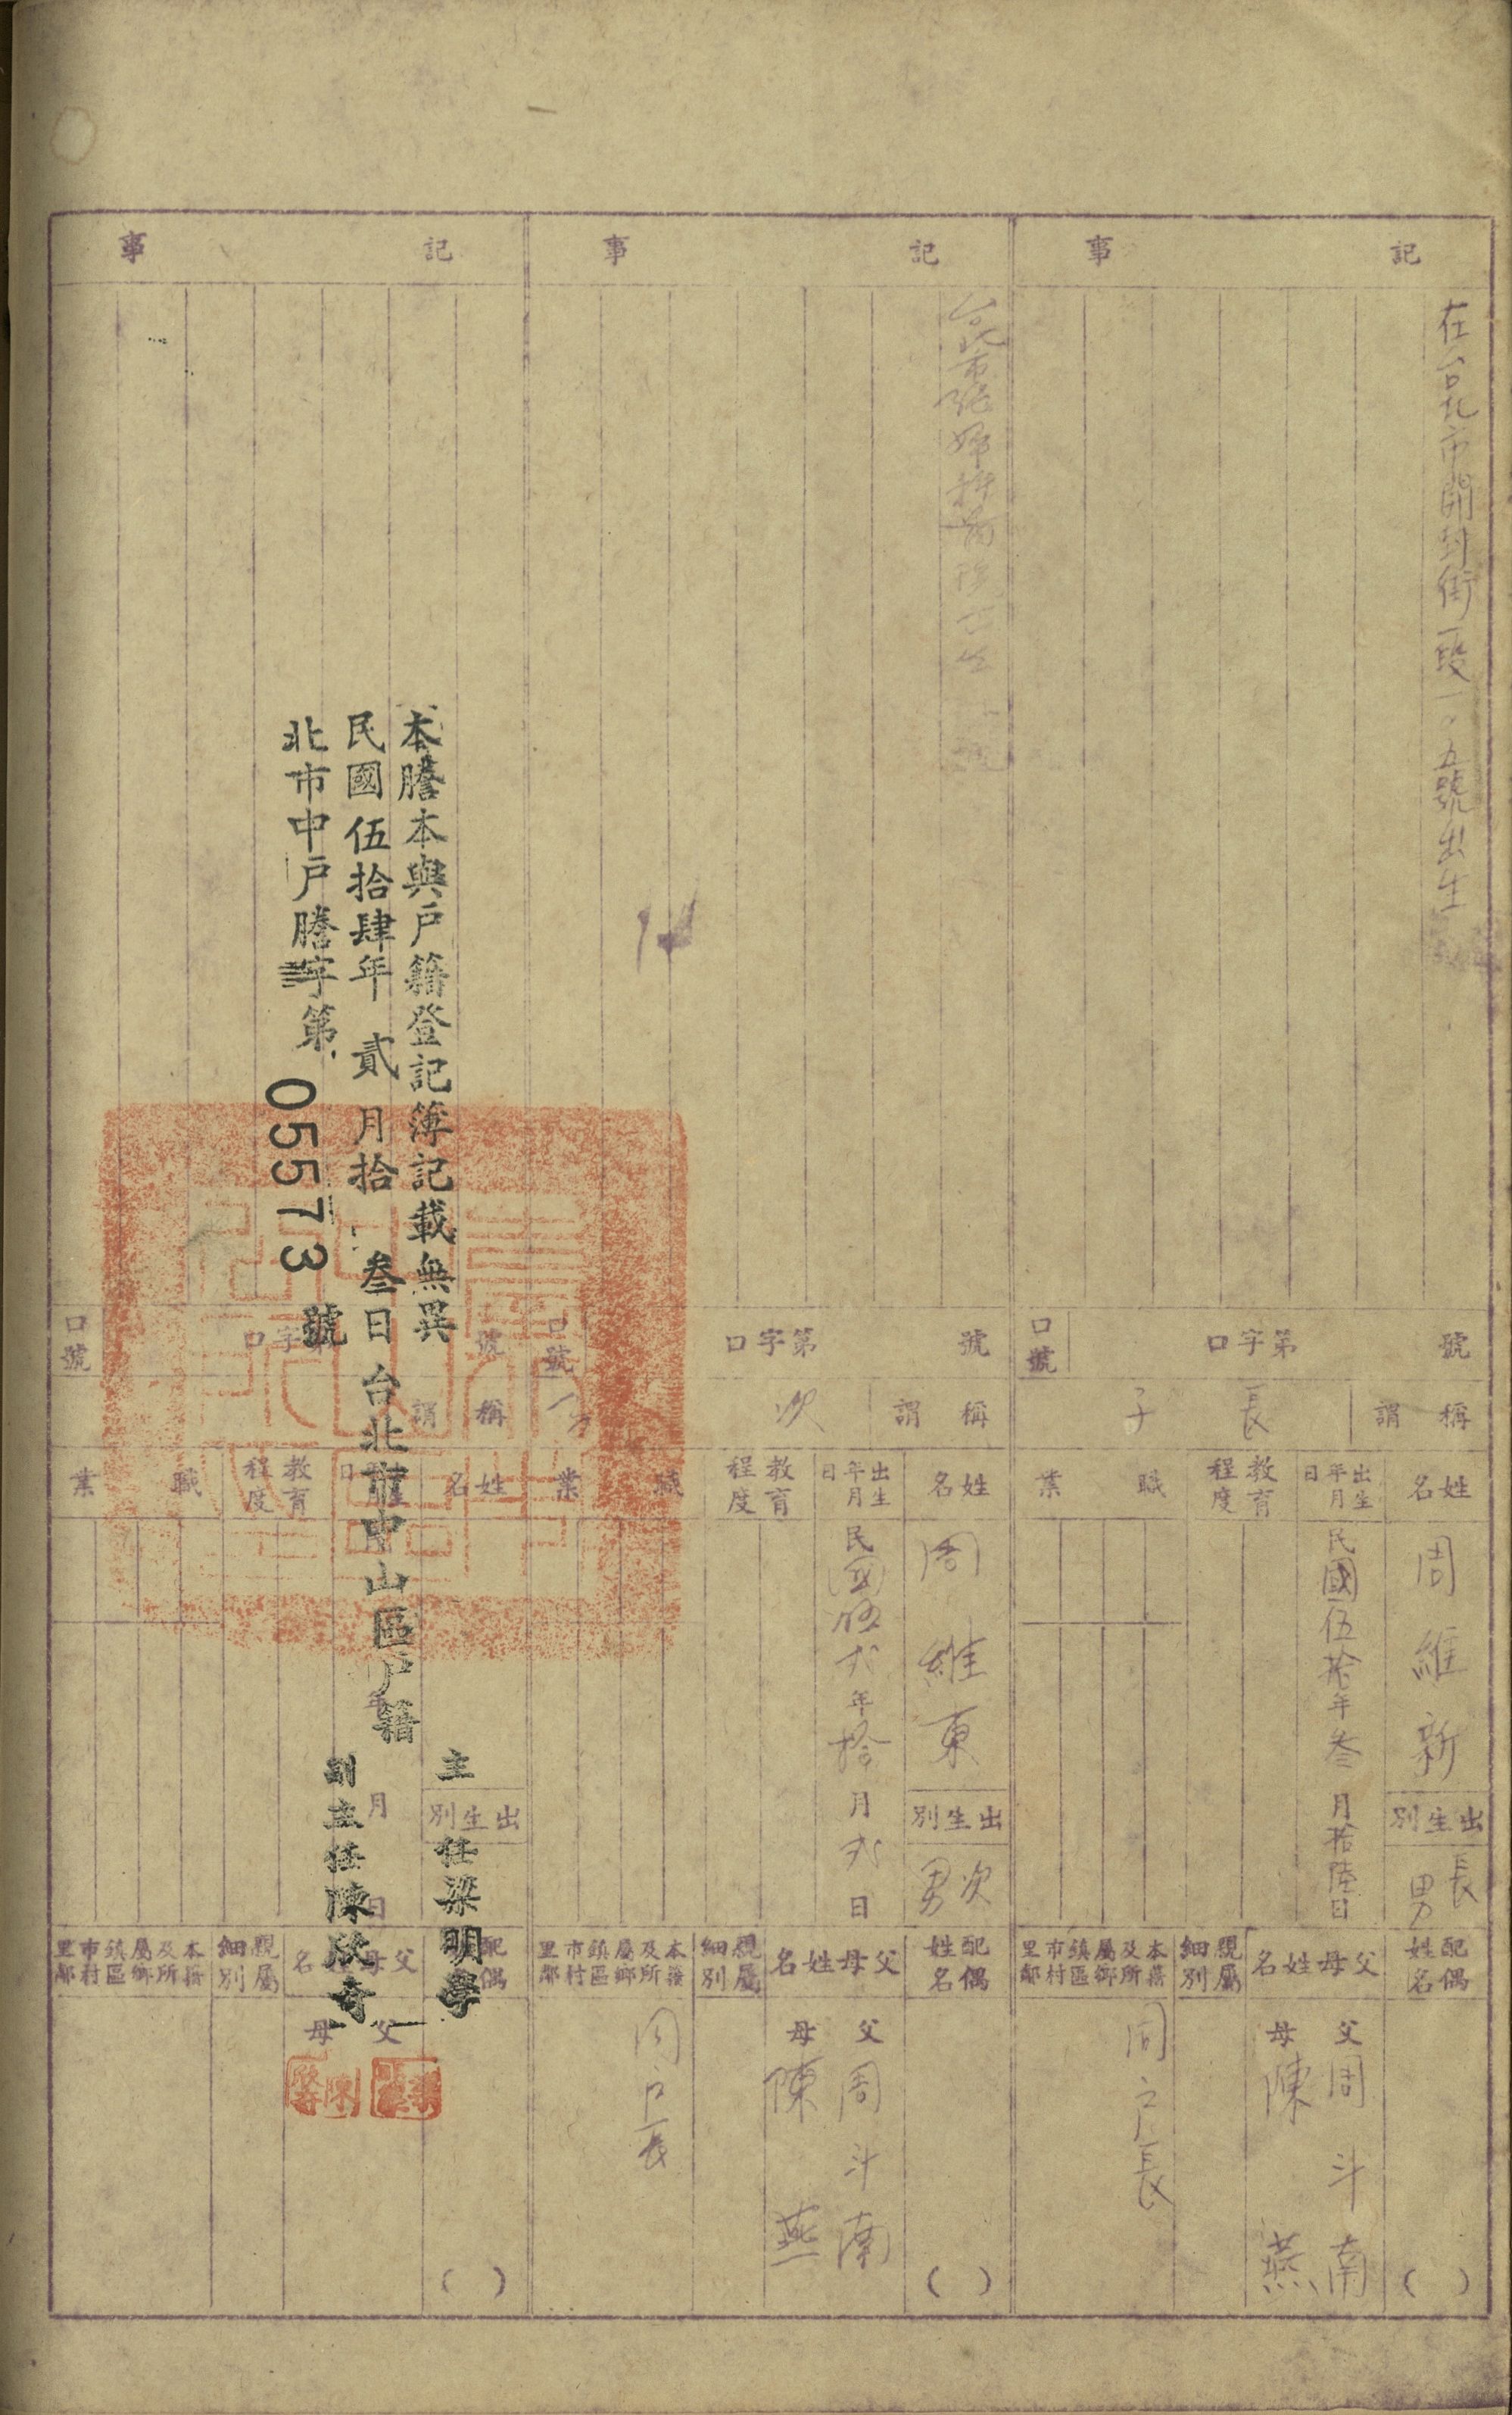 記事
在台北市開封街一段一〇五號出生
號
第字口
口號
稱謂
長子
姓名
出生年月日
教育程度
職業
周維新
民國伍拾年叁月拾陸日
出生別
長男
配偶姓名
父母姓名
親屬細別
本籍及所屬鄉鎮區市村里鄰
父
周斗南
母
陳燕
同戶長
( )
記事
號
第字口
口號
稱謂
次
姓名
出生年月日
教育程度
職業
周維東
民國伍弍年拾月弍日
出生別
次男
配偶姓名
父母姓名
親屬細別
本籍及所屬鄉鎮區市村里鄰
父
周斗南
母
陳燕
同戶長
( )
記事
本謄本與戶籍登記簿記載無異
民國伍拾肆年貳月拾叁日台北市中山區戶籍
北市中戶謄字第05573號
主任梁明學
副主任陳欣奇
號
口號
稱謂
姓名
教育程度
職業
年
月
日
出生別
親屬細別
本籍及所屬鄉鎮區市村里鄰
父
母
( )